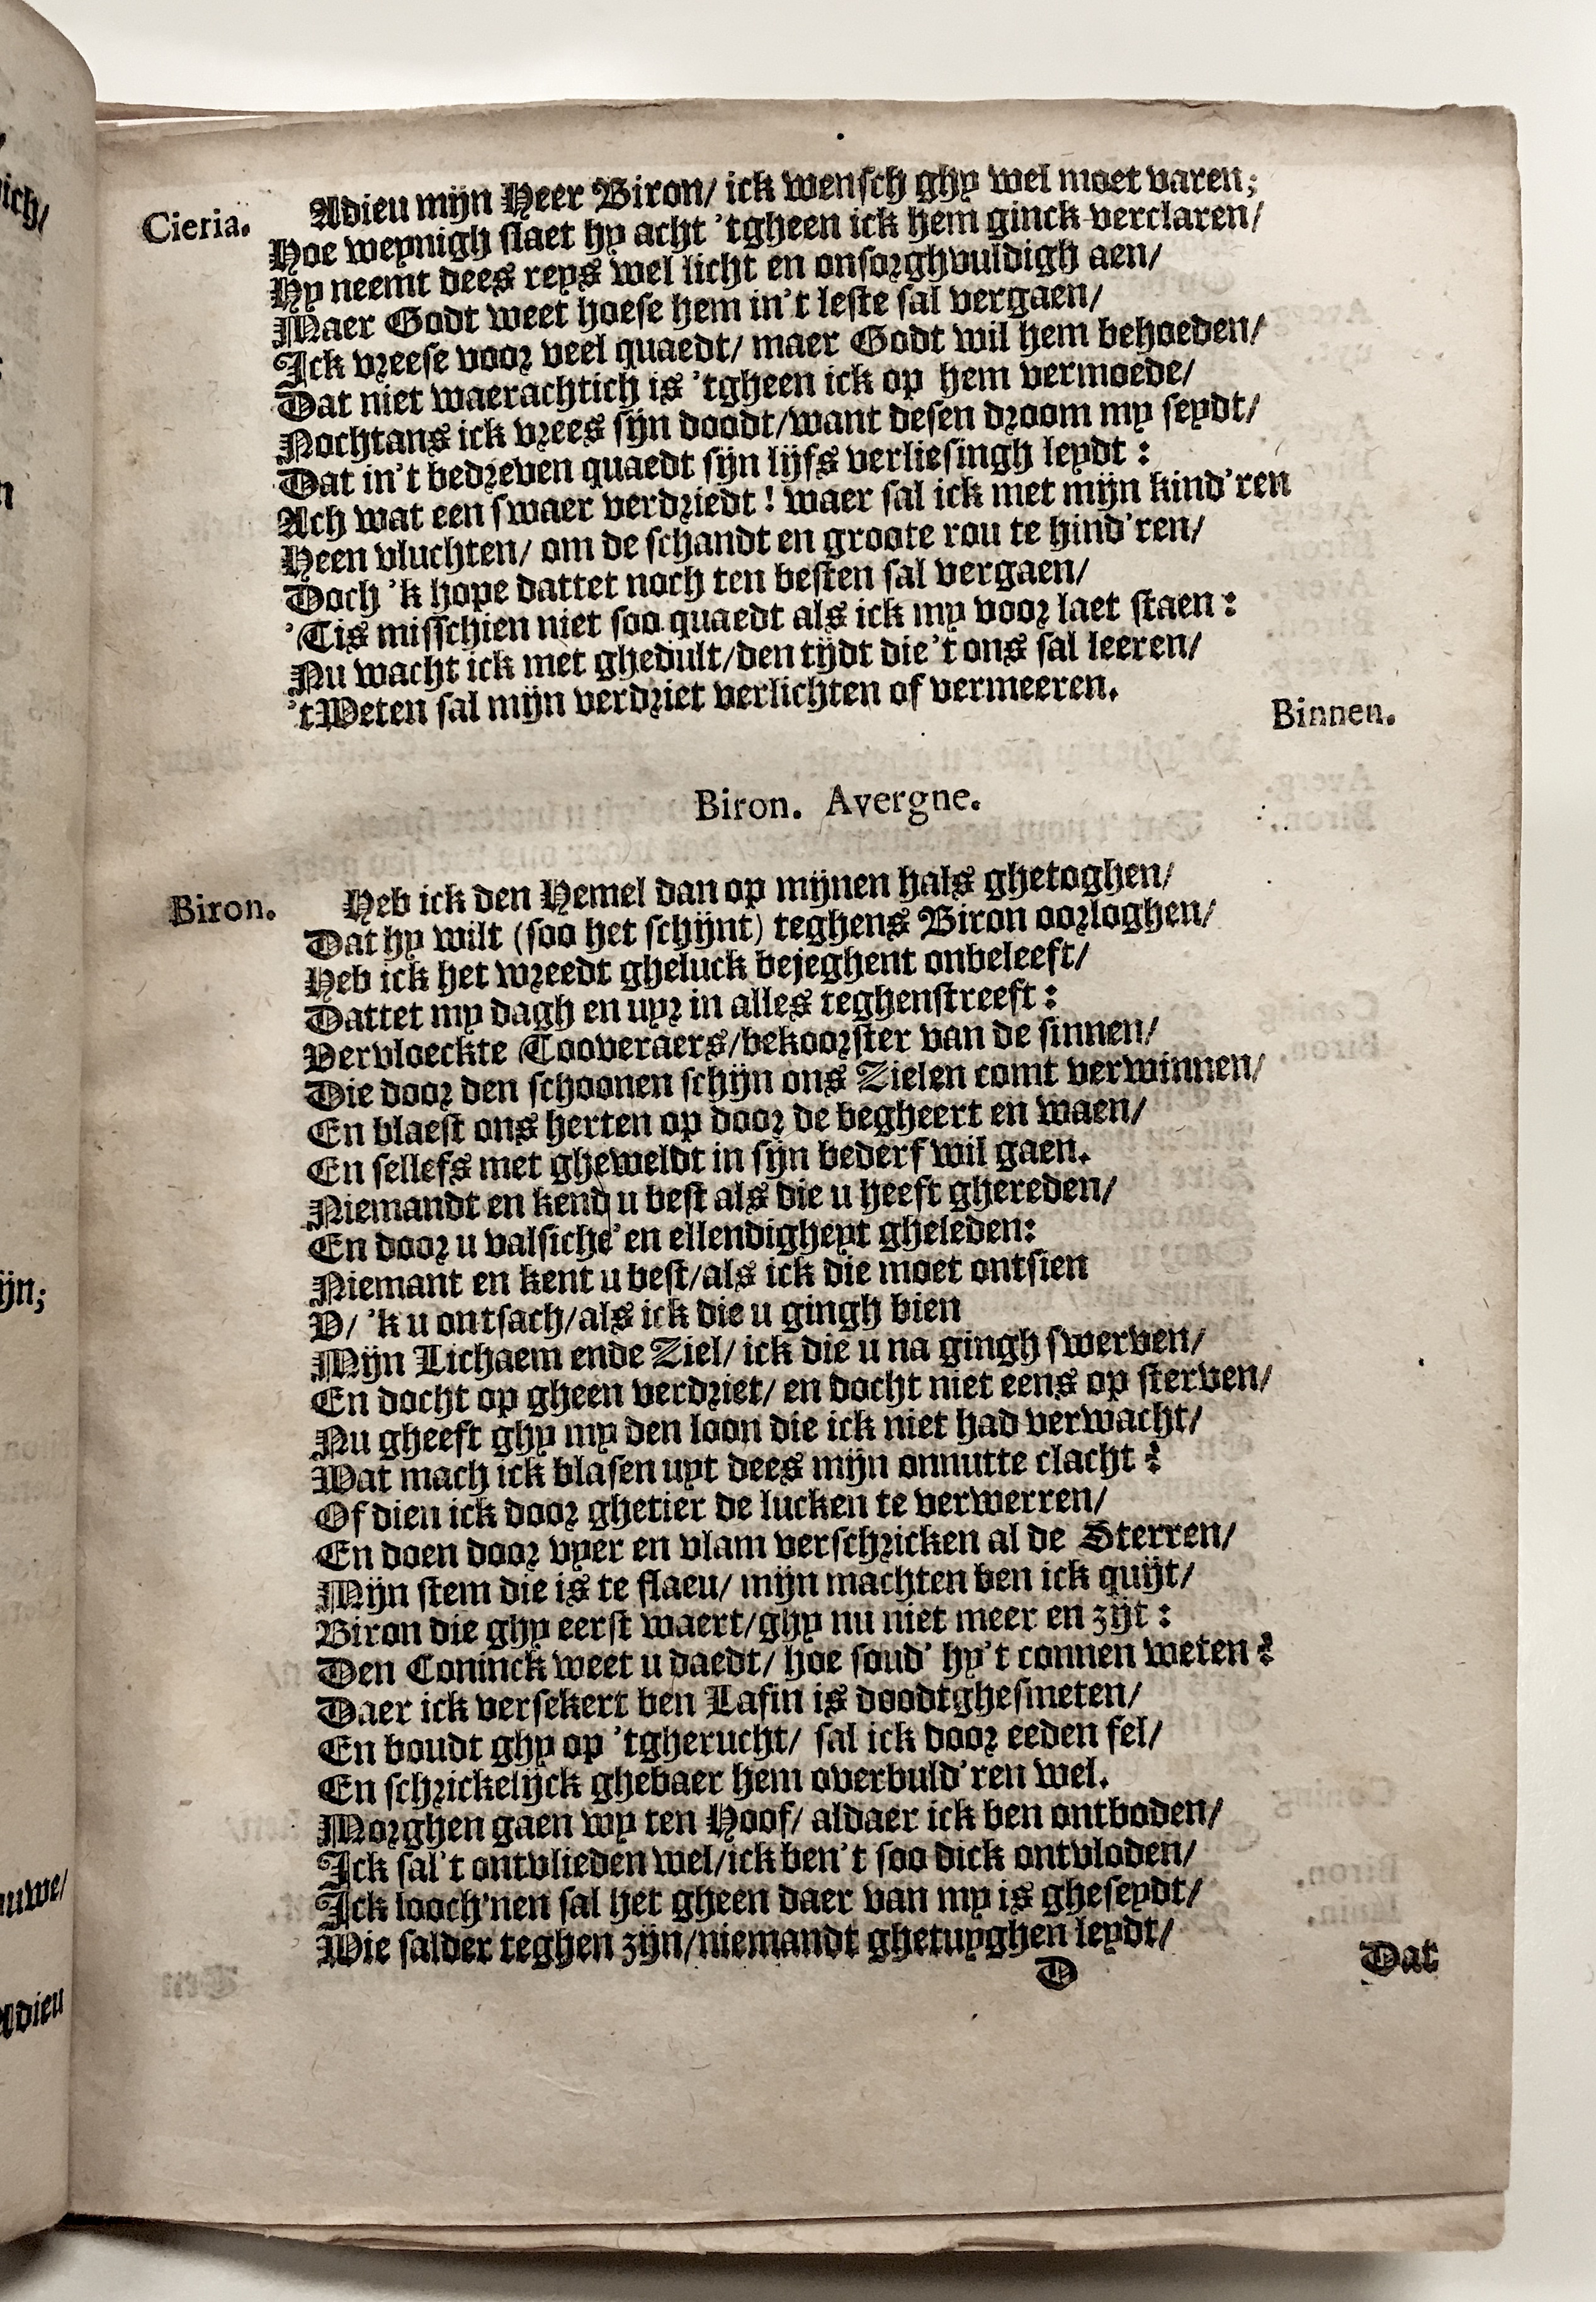 Cieria. Adieu mijn Heer Biron/ ick wensch ghy wel moet varen;
Hoe weynigh slaet hy acht 'tgheen ick hem ginck verclaren/
Hy neemt dees reys wel licht en onsorghvuldigh aen/
Maer Godt weet hoese hem in't leste sal vergaen/
Ick vreese voor veel quaedt/ maer Godt wil hem behoeden/
Dat niet waerachtich is 'tgheen ick op hem vermoede/
Nochtans ick vrees sijn doodt/want desen droom my seydt/
Dat in't bedreven quaedt sijn lijfs verliesingh leydt :
Ach wat een swaer verdriedt ! waer sal ick met mijn kind'ren
Heen vluchten/ om de schandt en groote rou te hind'ren/
Doch 'k hope dattet noch ten besten sal vergaen/
'Tis misschien niet soo quaedt als ick my voor laet staen :
Nu wacht ick met ghedult/den tijdt die't ons sal leeren/
'tWeten sal mijn verdriet verlichten of vermeeren.
Binnen.
Biron. Avergne.
Biron. Heb ick den Hemel dan op mijnen hals ghetoghen/
Dat hy wilt (soo het schijnt) teghens Biron oorloghen/
Heb ick het wreedt gheluck bejeghent onbeleeft/
Dattet my dagh en uyr in alles teghenstreeft :
Vervloeckte Tooveraers/bekoorster van de sinnen/
Die door den schoonen schijn ons Zielen comt verwinnen/
En blaest ons herten op door de begheert en waen/
En sellefs met gheweldt in sijn bederf wil gaen.
Niemandt en kend u best als die u heeft ghereden/
En door u valsiche' en ellendigheyt gheleden:
Niemant en kent u best/als ick die moet ontsien
V/ 'k u ontsach/als ick die u gingh bien
Mijn Lichaem ende Ziel/ ick die u na gingh swerven/
En docht op gheen verdriet/ en docht niet eens op sterven/
Nu gheeft ghy my den loon die ick niet had verwacht/
Wat mach ick blasen uyt dees mijn onnutte clacht ?
Of dien ick door ghetier de lucken te verwerren/
En doen door vyer en vlam verschricken al de Sterren/
Mijn stem die is te flaeu/ mijn machten ben ick quijt/
Biron die ghy eerst waert/ghy nu niet meer en zijt :
Den Coninck weet u daedt/ hoe soud' hy't connen weten ?
Daer ick versekert ben Lafin is doodtghesmeten/
En houdt ghy op 'tgherucht/ sal ick door eeden fel/
En schrickelijck ghebaer hem overbuld'ren wel.
Morghen gaen wy ten Hoof/ aldaer ick ben ontboden/
Ick sal't ontvlieden wel/ick ben't soo dick ontvloden/
Ick looch'nen sal het gheen daer van my is gheseydt/
Wie salder teghen zijn/niemandt ghetuyghen leydt/
D Dat
ich/
n
ijn;
uwe/
Adieu